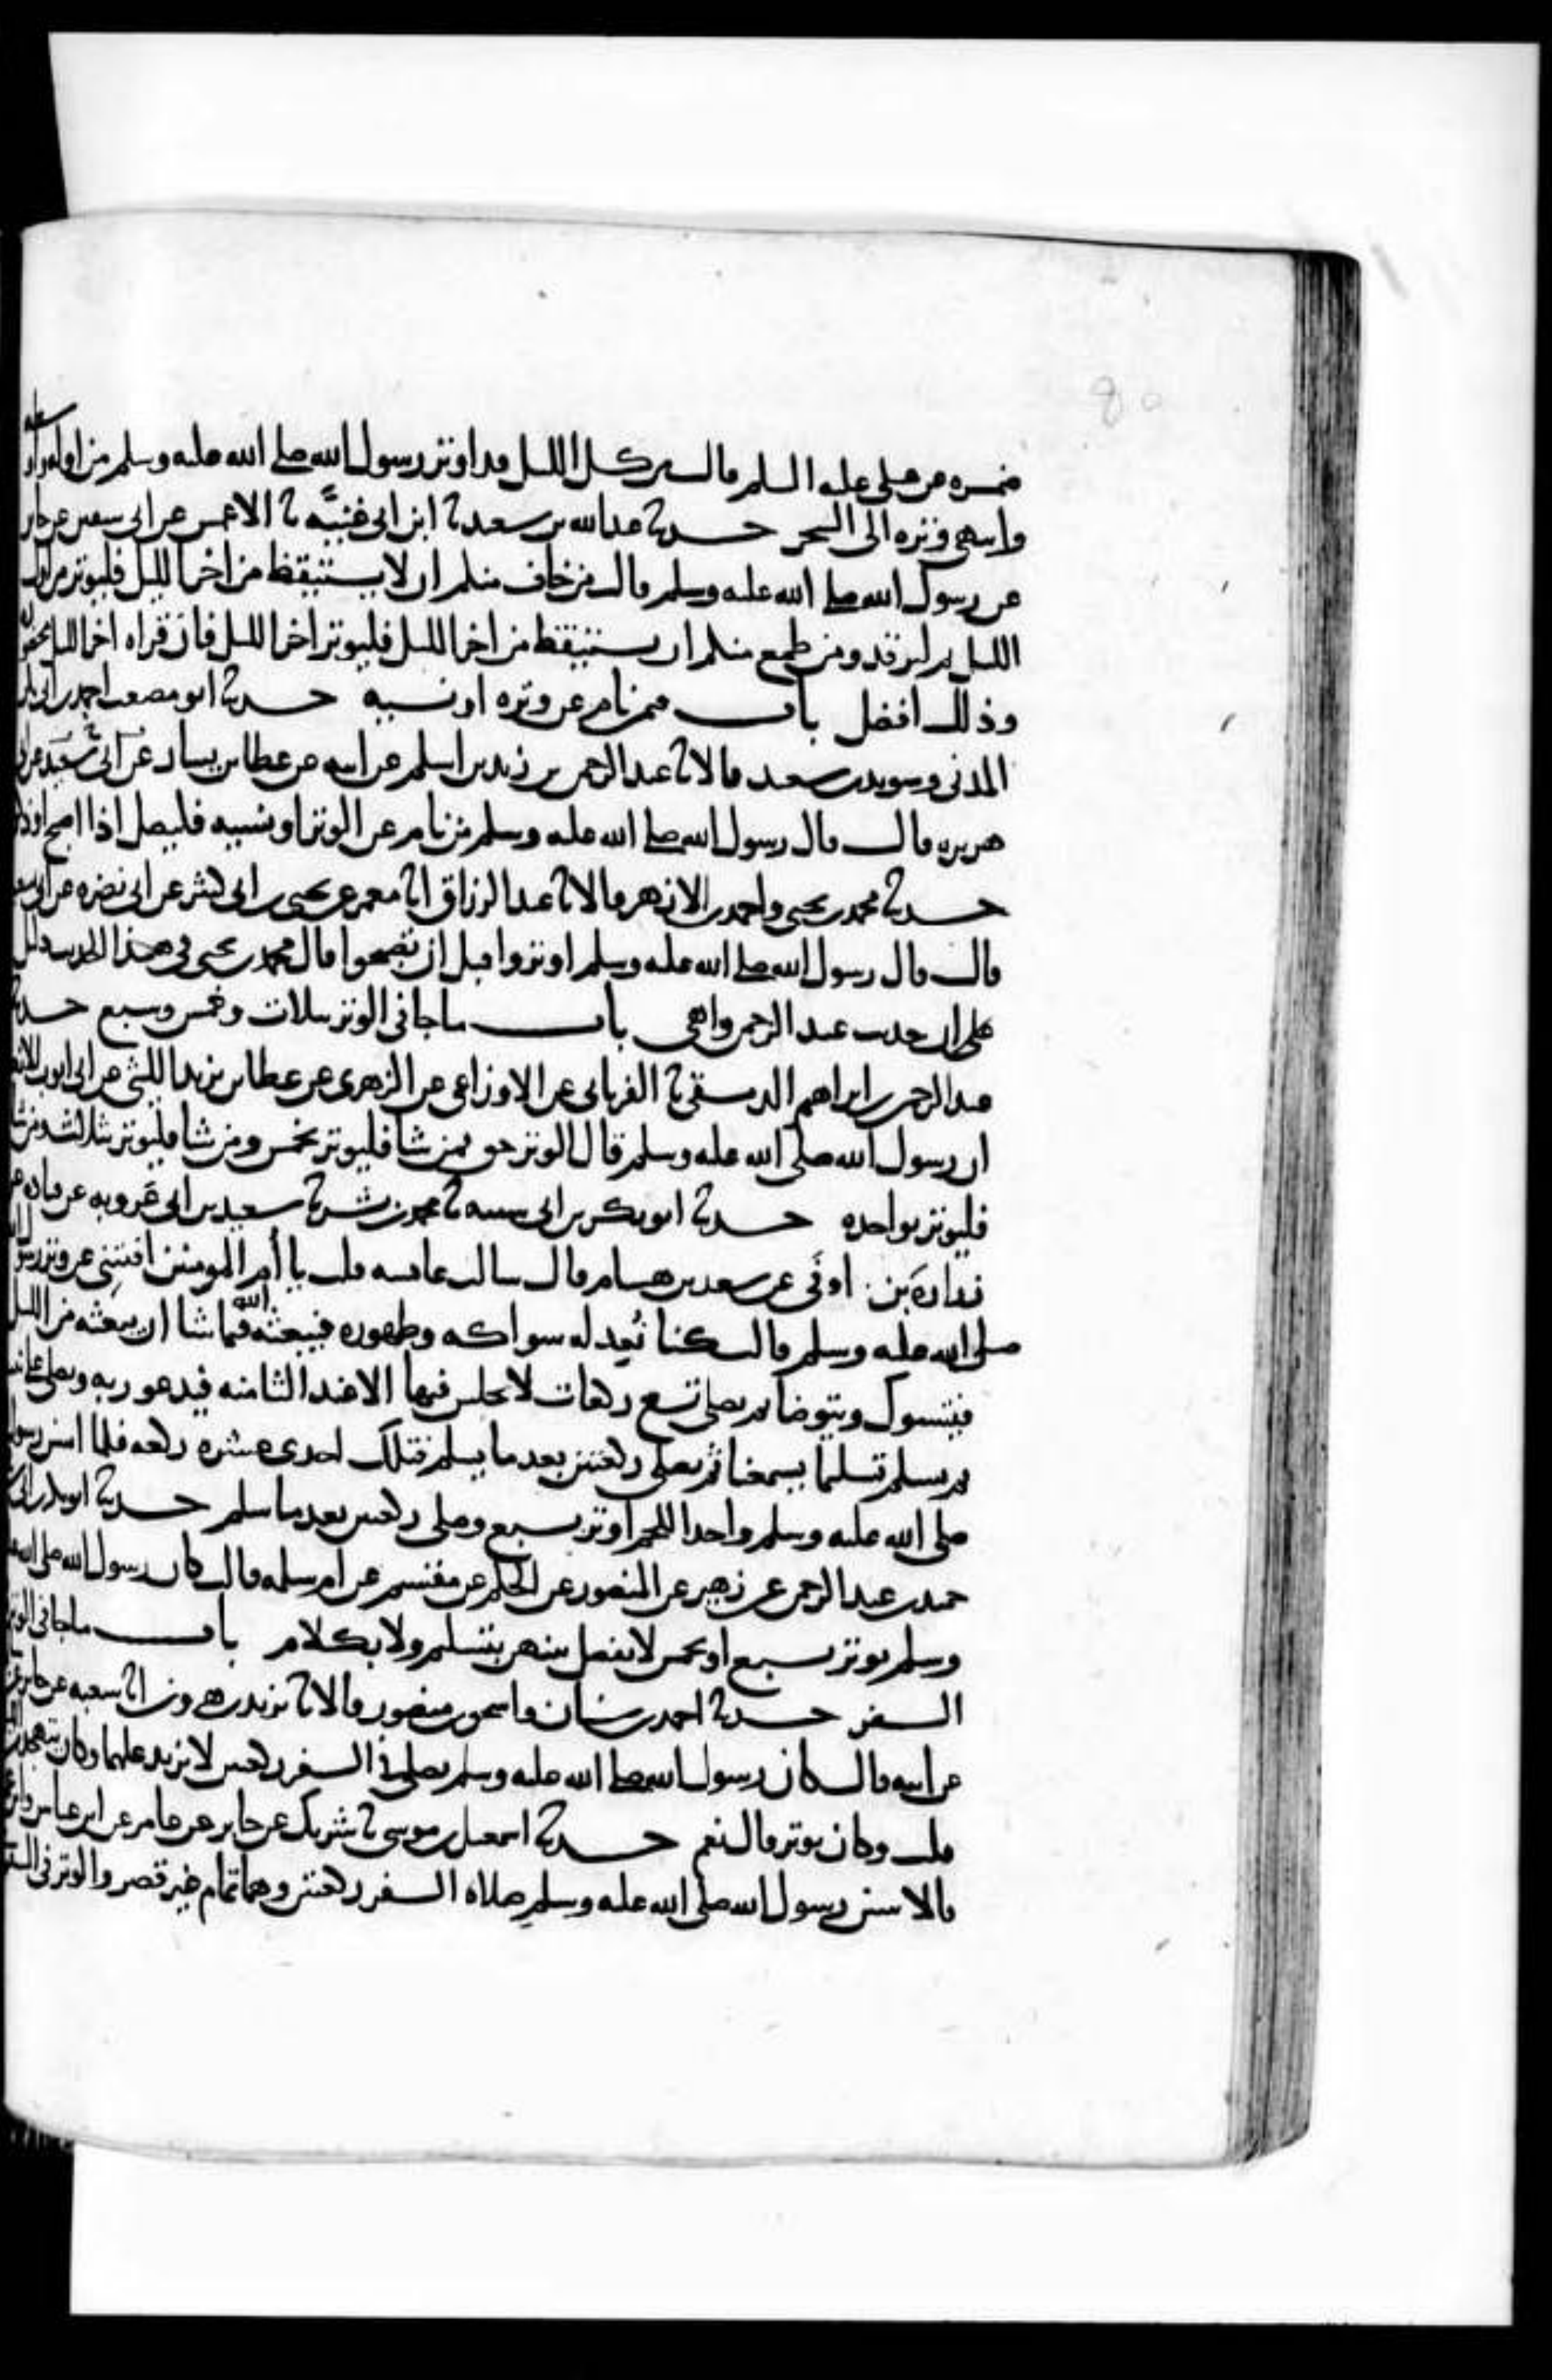 ضمره عن علي عليه السلم قال من كل الليل قد اوتر رسول الله صلى الله عليه وسلم من اوله واوسطه
وانتهى وتره الى السحر حدثنا عبد الله بن سعيد ثنا ابن ابي غنية ثنا الاعمش عن ابي سفين عن جابر
عن رسول الله صلى الله عليه وسلم قال من خاف منكم ان لا يستيقظ من اخر الليل فليوتر من اول
الليل ثم ليرقد ومن طمع منكم ان يستيقظ من اخر الليل فليوتر اخر الليل فان قراه اخر الليل محضوره
وذلك افضل باب من نام عن وتره او نسيه حدثنا ابو مصعب احمد بن ابي بكر
المدني وسويد بن سعيد قالا ثنا عبد الرحمن بن زيد بن اسلم عن ابيه عن عطا بن يسار عن ابي سعيد
هريره قال قال رسول الله صلى الله عليه وسلم من نام عن الوتر او نسيه فليصل اذا اصبح او ذكره
حدثنا محمد بن يحيى واحمد بن الازهر قالا ثنا عبد الرزاق انا معمر عن يحيى بن ابي كثير عن ابي نضره عن ابي سعيد
قال قال رسول الله صلى الله عليه وسلم اوتروا قبل ان تصبحوا قال محمد بن يحيى في هذا الحديث دليل
على ان حديث عبد الرحمن واهي باب ما جا في الوتر بثلاث وخمس وسبع حدثنا
عبد الرحمن بن ابراهيم الدمشقي ثنا الفريابي عن الاوزاعي عن الزهري عن عطا بن يزيد الليثي عن ابي ايوب الانصاري
ان رسول الله صلى الله عليه وسلم قال الوتر حق فمن شا فليوتر بخمس ومن شا فليوتر بثلاث ومن شا
فليوتر بواحده حدثنا ابو بكر بن ابي شيبه ثنا محمد بن بشر ثنا سعيد بن ابي عروبه عن قتاده عن
زراره بن اوفى عن سعد بن هشام قال سالت عائشه قلت يا ام المومنين افتيني عن وتر رسول الله
صلى الله عليه وسلم قالت كنا نعد له سواكه وطهوره فيبعثه الله فيما شا ان يبعثه من الليل
فيتسوك ويتوضا ثم يصلي تسع ركعات لا يجلس فيها الا عند الثامنه فيدعو ربه
ثم يسلم تسليما يسمعنا ثم يصلي ركعتين بعد ما يسلم فتلك احدى عشره ركعه فلما اسن رسول
صلى الله عليه وسلم واخذ اللحم اوتر بسبع وصلى ركعتين بعد ما سلم حدثنا ابو بكر بن ابي
حميد بن عبد الرحمن عن زهير عن المنصور عن الحكم عن مقسم عن ام سلمه قالت كان رسول الله صلى الله عليه
وسلم يوتر بسبع او بخمس لا يفصل بينهن بتسليم ولا بكلام باب ما جا في الوتر
السفر حدثنا احمد بن سنان واسحق بن منصور قالا ثنا يزيد بن هرون انا شعبه عن جابر عن
عن ابيه قال كان رسول الله صلى الله عليه وسلم يصلي في السفر ركعتين لا يزيد عليهما وكان يتهجد
قلت وكان يوتر قال نعم حدثنا اسمعيل بن موسى ثنا شريك عن جابر عن عامر عن ابن عباس وابن عمر
قالا سن رسول الله صلى الله عليه وسلم صلاه السفر ركعتين وهما تمام غير قصر والوتر في السفر